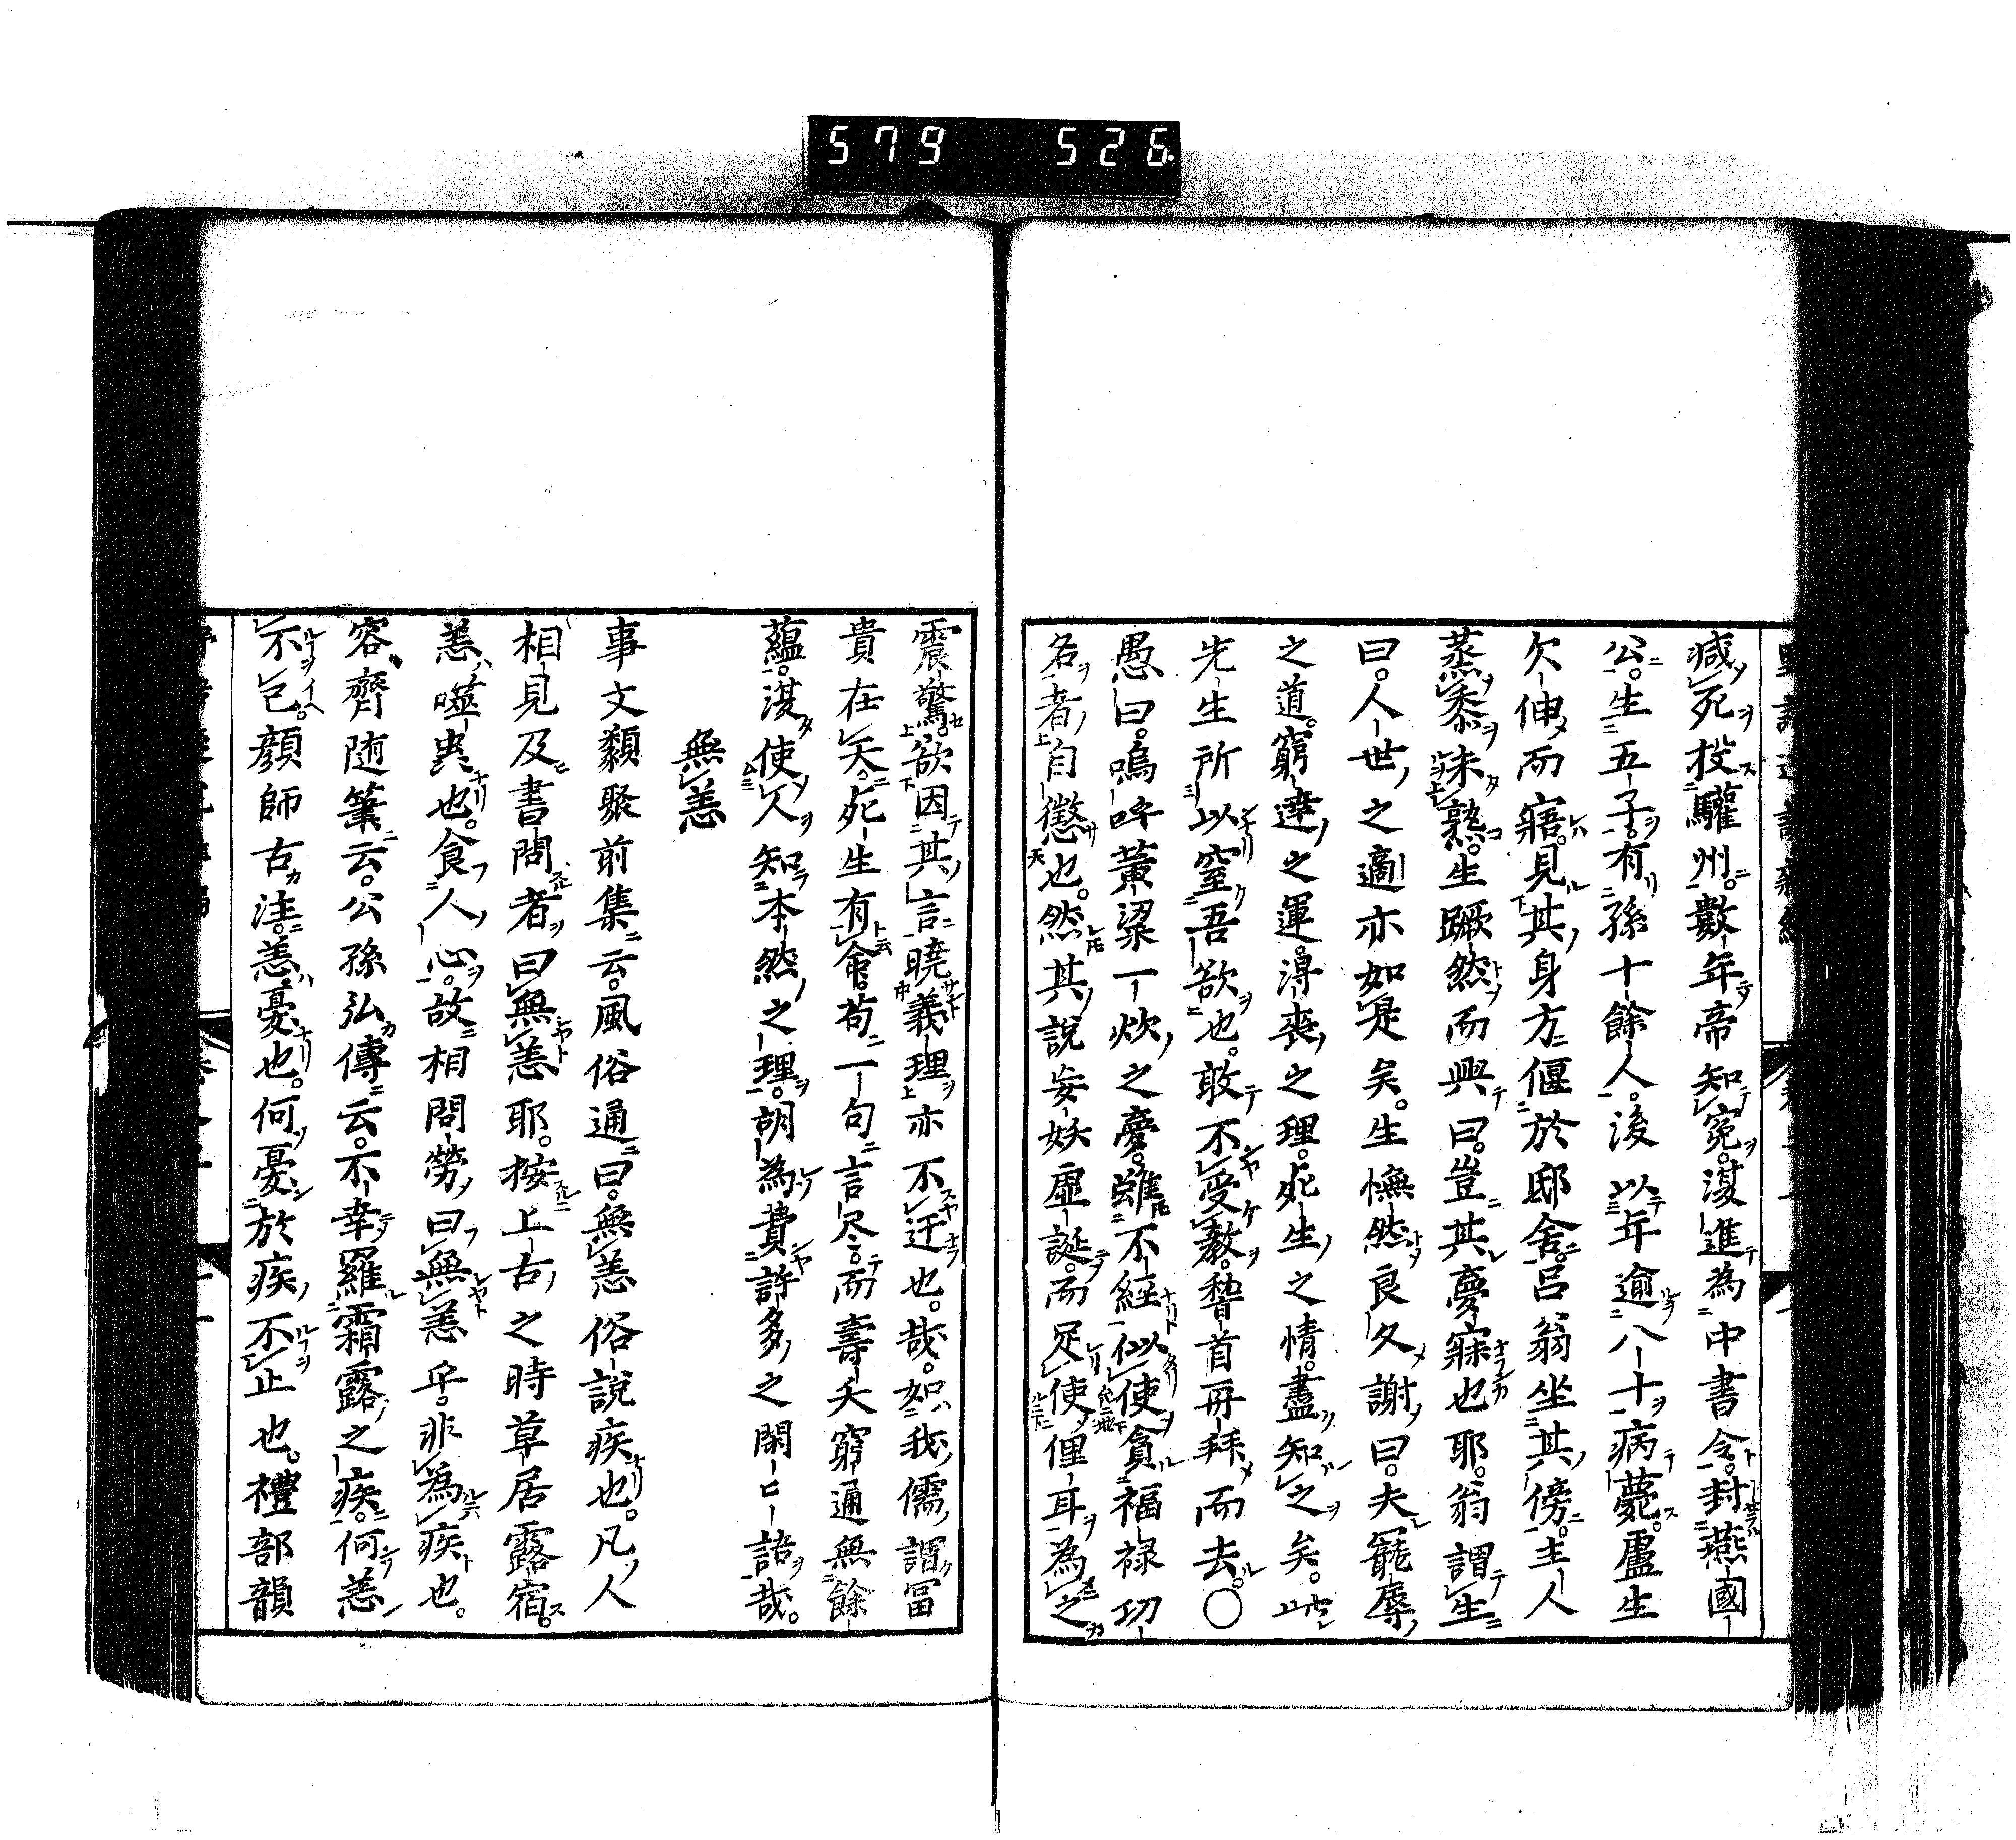 579 526
減死投驩州數年帝知冤復進為中書令封燕國
公生五子有孫十餘人後以年逾八十病薨盧生
欠伸而寤見其身方偃於邸舍呂翁坐其傍主人
蒸黍未熟生蹶然而興曰豈其夢寐也耶翁謂生
曰人世之適亦如是矣生憮然良久謝曰夫寵辱
之道窮達之運得喪之理死生之情盡知之矣此
先生所以窒吾欲也敢不受教稽首再拜而去〇
愚曰嗚呼黃粱一炊之夢雖不經似使貪福祿功
名者自懲也然其說妄妖虛誕而足使俚耳為之
震驚欲因其言曉義理亦不迂也哉如我儒謂冨
貴在天死生有命苟一句言尽而壽夭窮通無餘
蘊復使人知本然之理胡為費許多之閑言語哉
無恙
事文類聚前集云風俗通曰無恙俗說疾也凡人
相見及書問者曰無恙耶按上古之時草居露宿
恙噬蟲也食人心故相問勞曰無恙乎非為疾也
容齊随筆云公孫弘傳云不幸羅霜露之疾何恙
不已顏師古注恙憂也何憂於疾不止也禮部韻